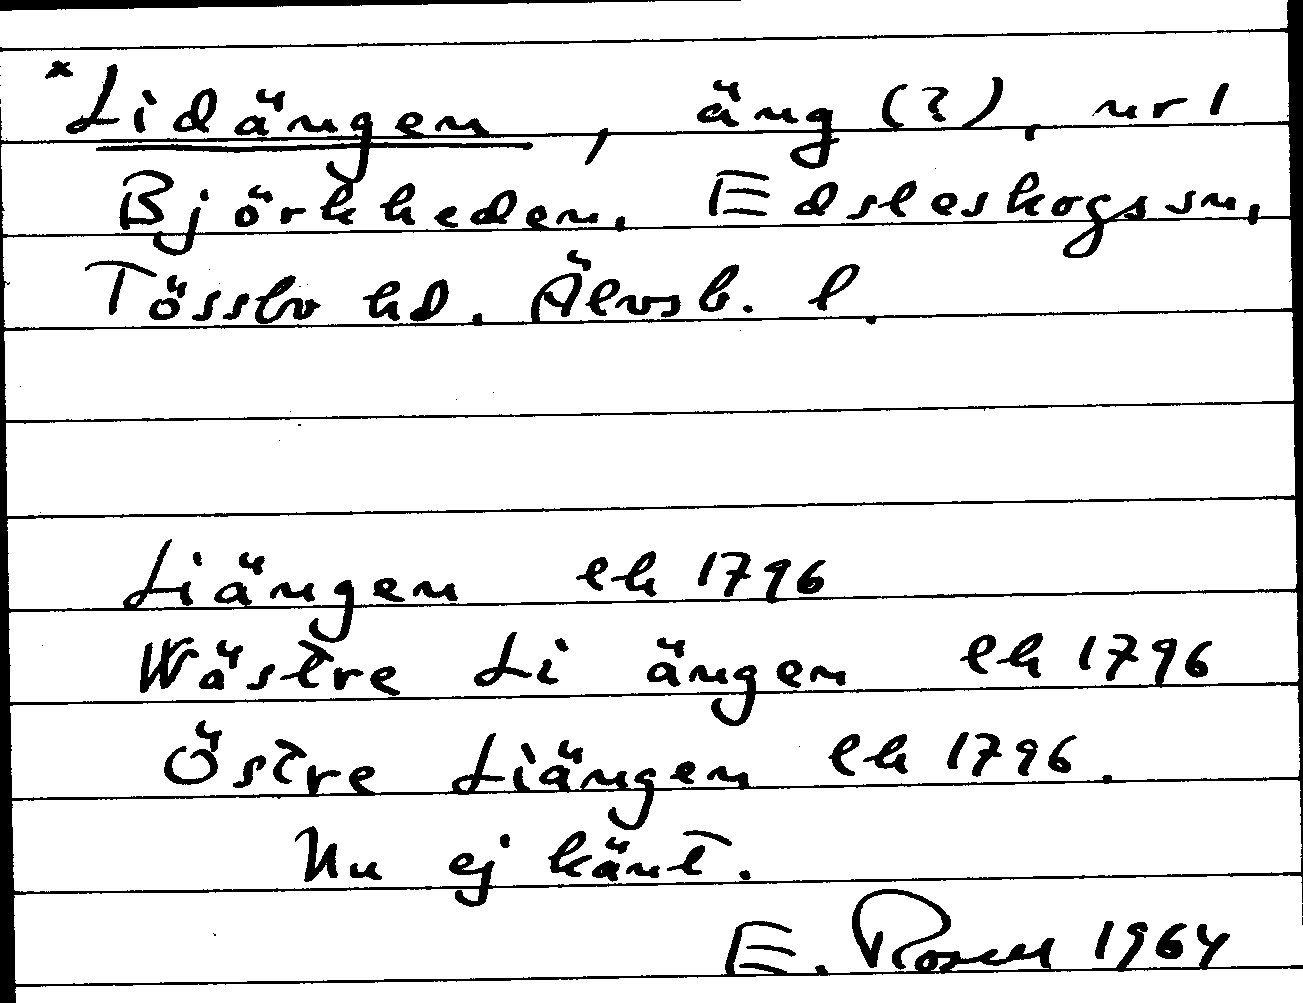 *Lidängen, äng (?), nr 1
Björkheden. Edsleskogs sn,
Tössbo hd. Älvsb. l.
Liängen lh 1796
Wästre Li ängen lh 1796
Östre Liängen lh 1796.
Nu ej känt.
E. Rosell 1964